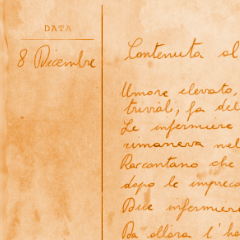 DATA
8 Dicembre
Contenuta al
Umore elevato,
trivial, fa del
Le infermiere
rimaneva nel
Raccontano che
dopo le imprec
Dice infermier
Da allora l'ha